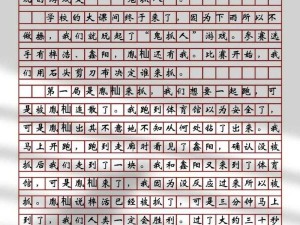 学校的大课间终于来了，因为下雨所以不
做操，我们就玩起了“鬼抓人”游戏。参赛选
手有梓洁、鑫阳，胤杣还有我。比赛开始，我
们用石头剪刀布决定谁来抓。
第一局是胤杣来抓。我们想要一起跑，可
是被胤杣追散了。我跑到体育馆以为安全了，
可是胤杣出其不意地不知从何处钻了出来。我
马上开跑，跑到走廊时看见了鑫阳，确认没被
抓后我们走到了一块。我和鑫阳又来到了体育
馆，可是胤杣来了，我因为没反应过来所以被
抓。胤杣说梓洁已经被抓了，可是三分钟马上
到了，我们人类一定会胜利。过了大约三十秒